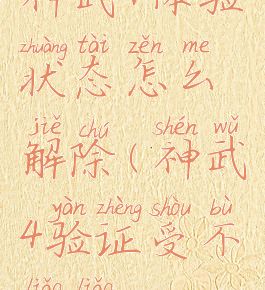 神武4体验
zhuàng tài zěn me
状态怎么
jiě chú shén wǔ
解除(神武
yàn zhèng shòu bù
4验证受不
liǎo liǎo